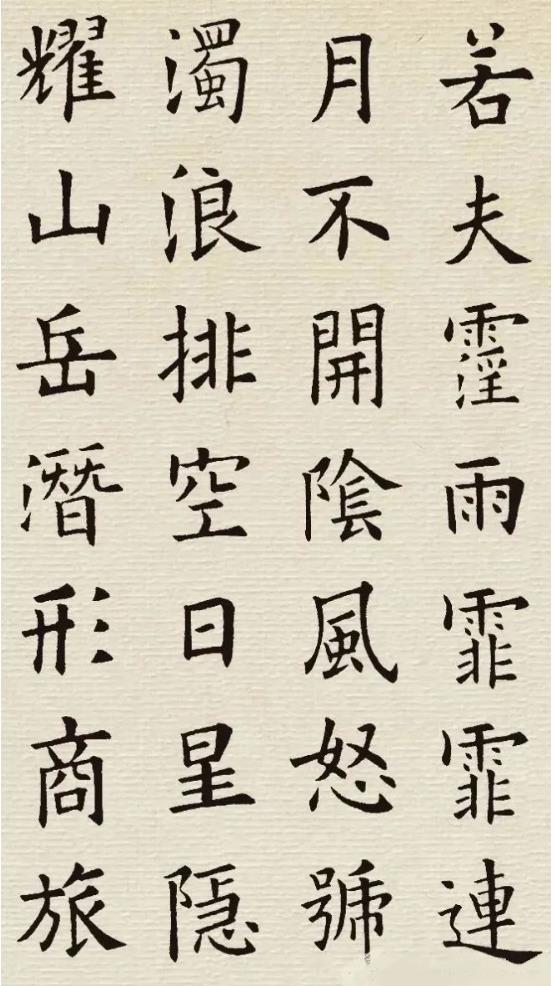 若夫霪雨霏霏連
月不開陰風怒號
濁浪排空日星隠
耀山岳潛形商旅